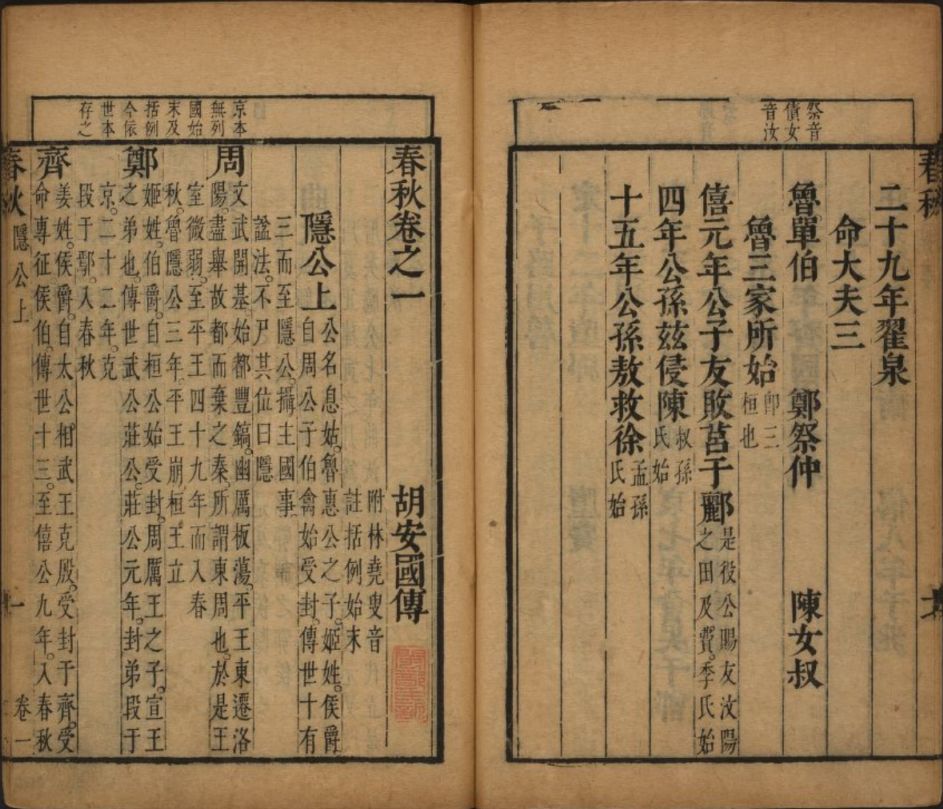 祭音
債女
音汝
二十九年翟泉
命大夫三
魯單伯 鄭祭仲 陳女叔
魯三家所始 卽三桓也
僖元年公子友敗莒于酈 是役公賜友汶陽之田及費季氏始
四年公孫茲侵陳 叔孫氏始
十五年公孫敖救徐 孟孫氏始
京本
無列
國始
末及
括例
今依
世本
存之
春秋卷之一 胡安國傳
附林堯叟音
註括例始末
隱公上 公名息姑。魯惠公之子。姬姓。侯爵
自周公子伯禽始受封。傳世十有
三而至隱公。攝主國事
謚法。不尸其位曰隱
周 文武開基始都豐鎬。幽厲板蕩。平王東遷洛
陽。盡舉故都而棄之秦。所謂東周也。於是王
室微弱。至平王四十九年而入春
秋。魯隱公三年。平王崩。桓王立
鄭 姬姓。伯爵。自桓公始受封。周厲王之子。宣王
之弟也。傳世武公莊公。莊公元年。封弟段于
京。二十二年。克
段于鄢。入春秋
齊 姜姓。侯爵。自太公相武王克殷。受封于齊。受
命專征侯伯。傳世十三。至僖公九年。入春秋
春秋 隱公上 一 卷一